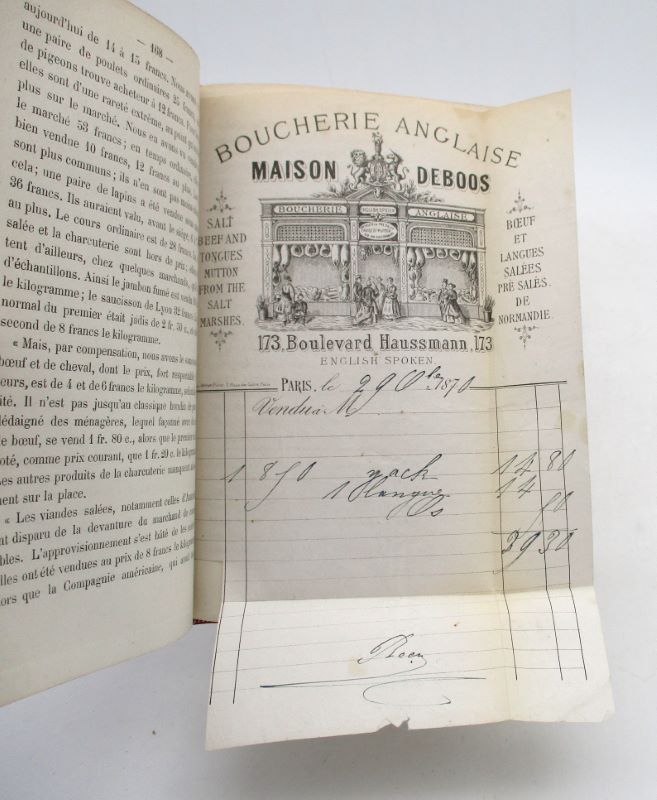 aujourd'hui de 14 à 15 francs.
— 168 —
une paire de poulets ordinaires 25
de pigeons trouve acheteur à 12 francs.
elles sont d'une rareté extrême, au point
plus sur le marché. Nous en avons vu
le marché 53 francs; en temps ordinaire,
bien vendue 10 francs, 12 francs au plus.
sont plus communs; ils n'en sont pas
cela; une paire de lapins a été vendue
36 francs. Ils auraient valu, avant le siége,
au plus. Le cours ordinaire est de 28 francs.
salée et la charcuterie sont hors de prix;
tent d'ailleurs, chez quelques marchands,
d'échantillons. Ainsi le jambon fumé est vendu
le kilogramme; le saucisson de Lyon 32 francs
normal du premier était jadis de 2 fr. 50 c.,
second de 8 francs le kilogramme.
« Mais, par compensation, nous avons le
bœuf et de cheval, dont le prix, fort
eurs, est de 4 et de 6 francs le kilogramme,
ité. Il n'est pas jusqu'au classique boudin
dédaigné des ménagères, lequel façonné avec
e bœuf, se vend 1 fr. 80 c., alors que le premier
oté, comme prix courant, que 1 fr. 20 c. le
Les autres produits de la charcuterie manquent
ment sur la place.
« Les viandes salées, notamment celles
nt disparu de la devanture du marchand de
bles. L'approvisionnement s'est bâté de les
elles ont été vendues au prix de 8 francs le
lors que la Compagnie américaine, qui
BOUCHERIE ANGLAISE
MAISON DEBOOS
BOUCHERIE ANGLAISE
SALT
BEEF AND
TONGUES
MUTTON
FROM THE
SALT
MARSHES.
BŒUF
ET
LANGUES
SALÉES
PRÉ SALÉS.
DE
NORMANDIE.
173, Boulevard Haussmann, 173
ENGLISH SPOKEN.
PARIS, le 29 1870
Vendu à M
1 850 14 80
1 langue 14
50
39 30